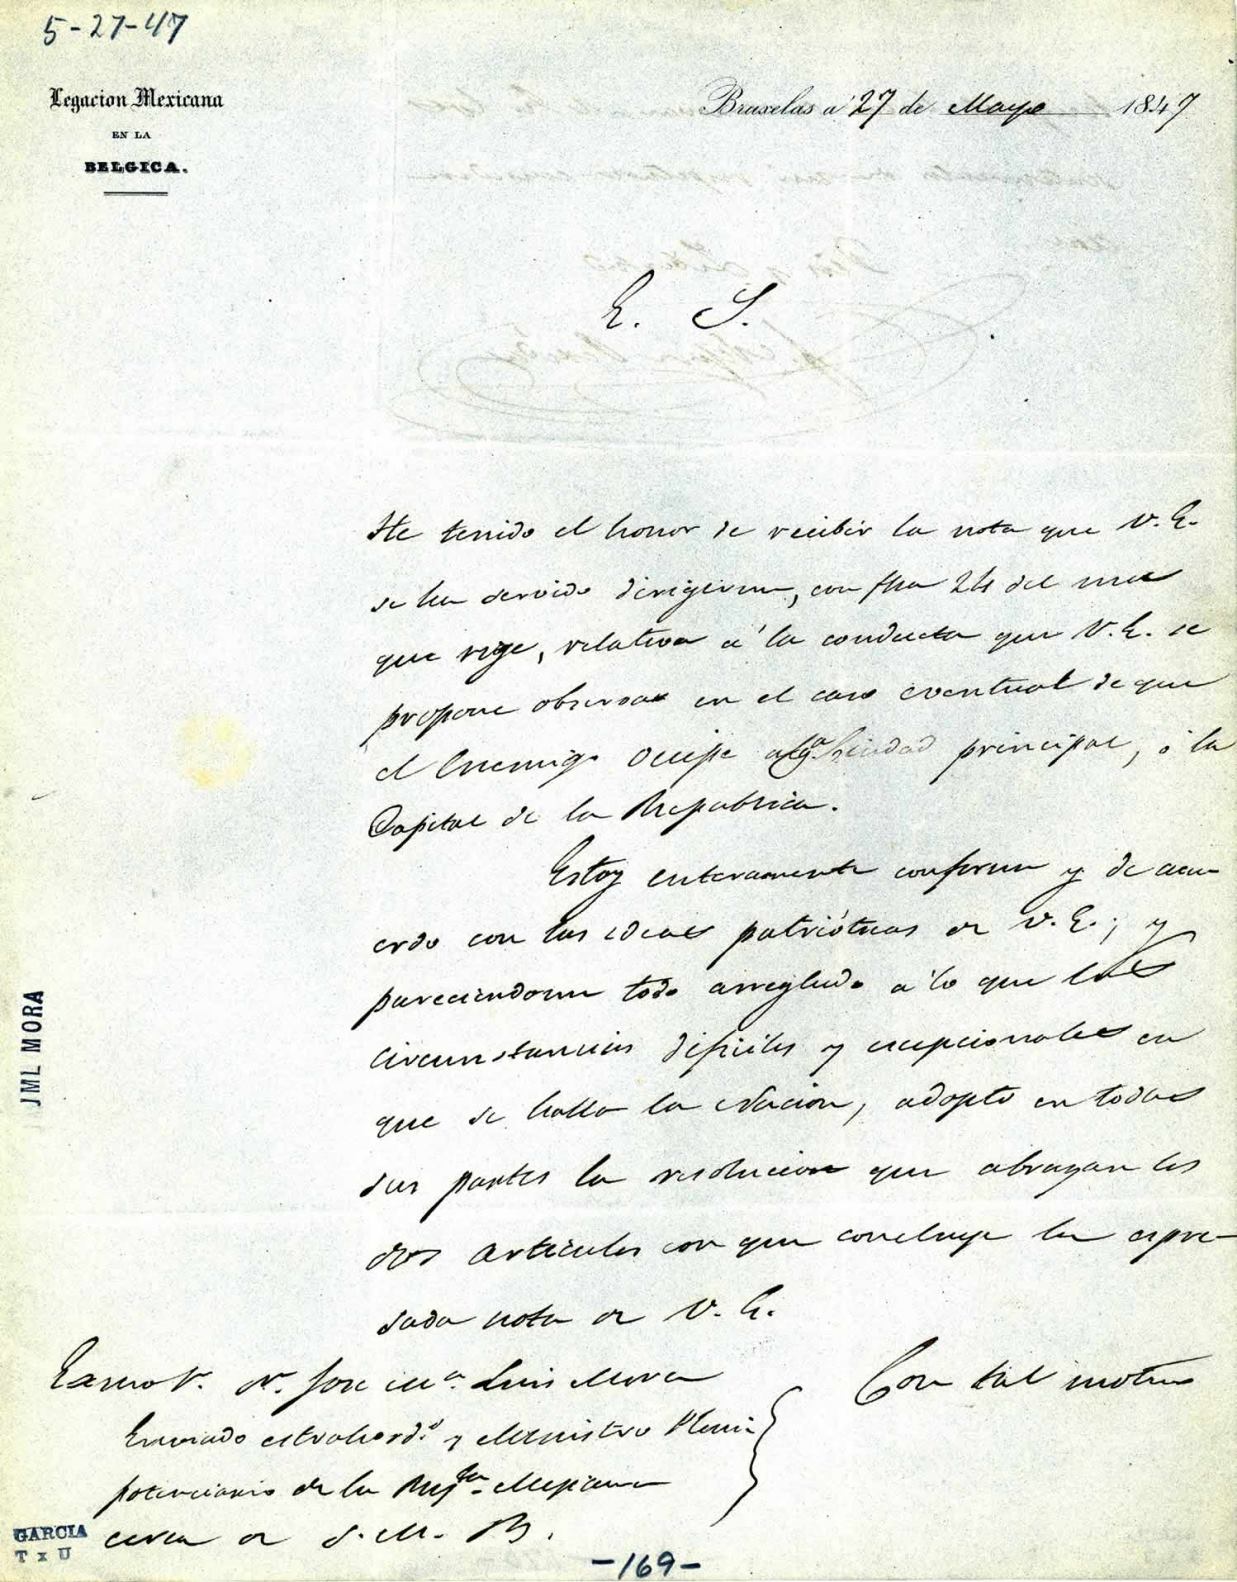 5-27-47
Legacion Mexicana
EN LA
BELGICA.
Bruxelas a 27 de Mayo 1847
E. S.
He tenido el honor de recibir la nota que V. E.
se ha servido dirigirme, con fha 24 del mes
que rige, relativa á la conducta que V. E. se
propone observar en el caso eventual de que
el Enemigo ocupe algª Ciudad principal, ó la
Capital de la Republica.
Estoy enteramente conforme y de acu-
erdo con las ideas patrióticas de V. E.; y
pareciendome todo arreglado á lo que las
circunstancias dificiles y excepcionales en
que se halla la Nacion, adopto en todas
sus partes la resolucion que abrazan los
dos articulos con que concluye la espre-
sada nota de V. E.
Con tal motivo
Exmo S. Dn. José Mª. Luis Mora
Enviado estrahordº y Ministro Pleni
potenciario de la Repca. Mejicana
cerca de S. M. B.
JML MORA
GARCIA
T x U
-169-